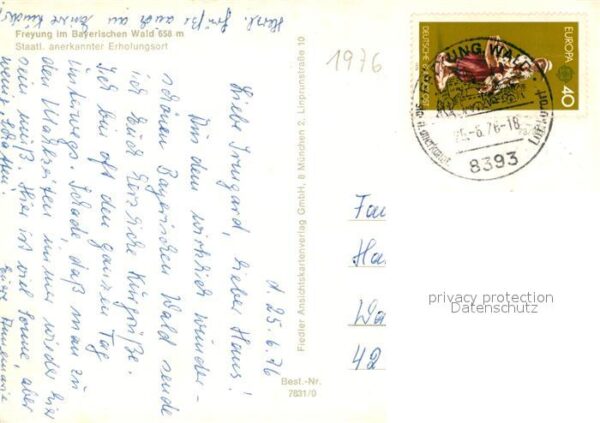 Herzl. Grüße auch an Eure Kinder
Freyung im Bayerischen Wald 658 m
Staatl. anerkannter Erholungsort
d 25.6.76
Liebe Irmgard, lieber Hans!
Aus dem wirklich wunder-
schönen Bayerischen Wald sende
ich Euch herzliche Kurgrüße.
Ich bin oft den ganzen Tag
unterwegs. Schade, daß man zu
den Mahlzeiten immer wieder hier
sein muß. Hier ist viel Sonne, aber
wenig Schatten.
Eure Annemarie
Fiedler Ansichtskartenverlag GmbH, 8 München 2, Linprunstraße 10
Best.-Nr.
7831/0
1976
DEUTSCHE BUNDESPOST
EUROPA
40
FREYUNG, WALD
25.-6.76-18
Luftkurort
8393
Ha
42
privacy protection
Datenschutz